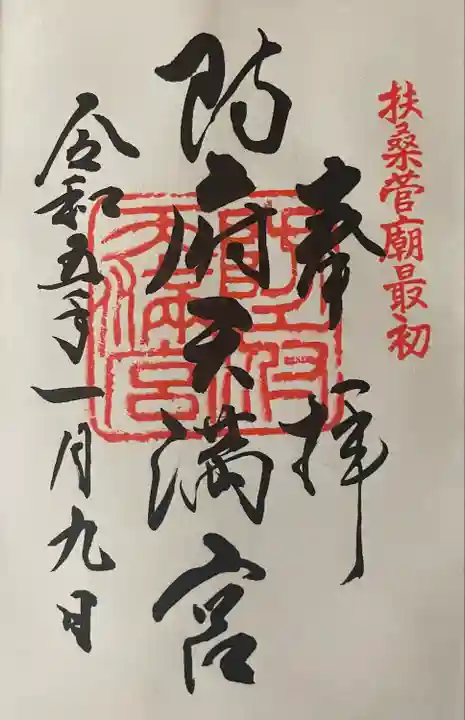 扶桑菅廟最初
奉拝
防府天満宮
防府天満宮
令和五年一月九日